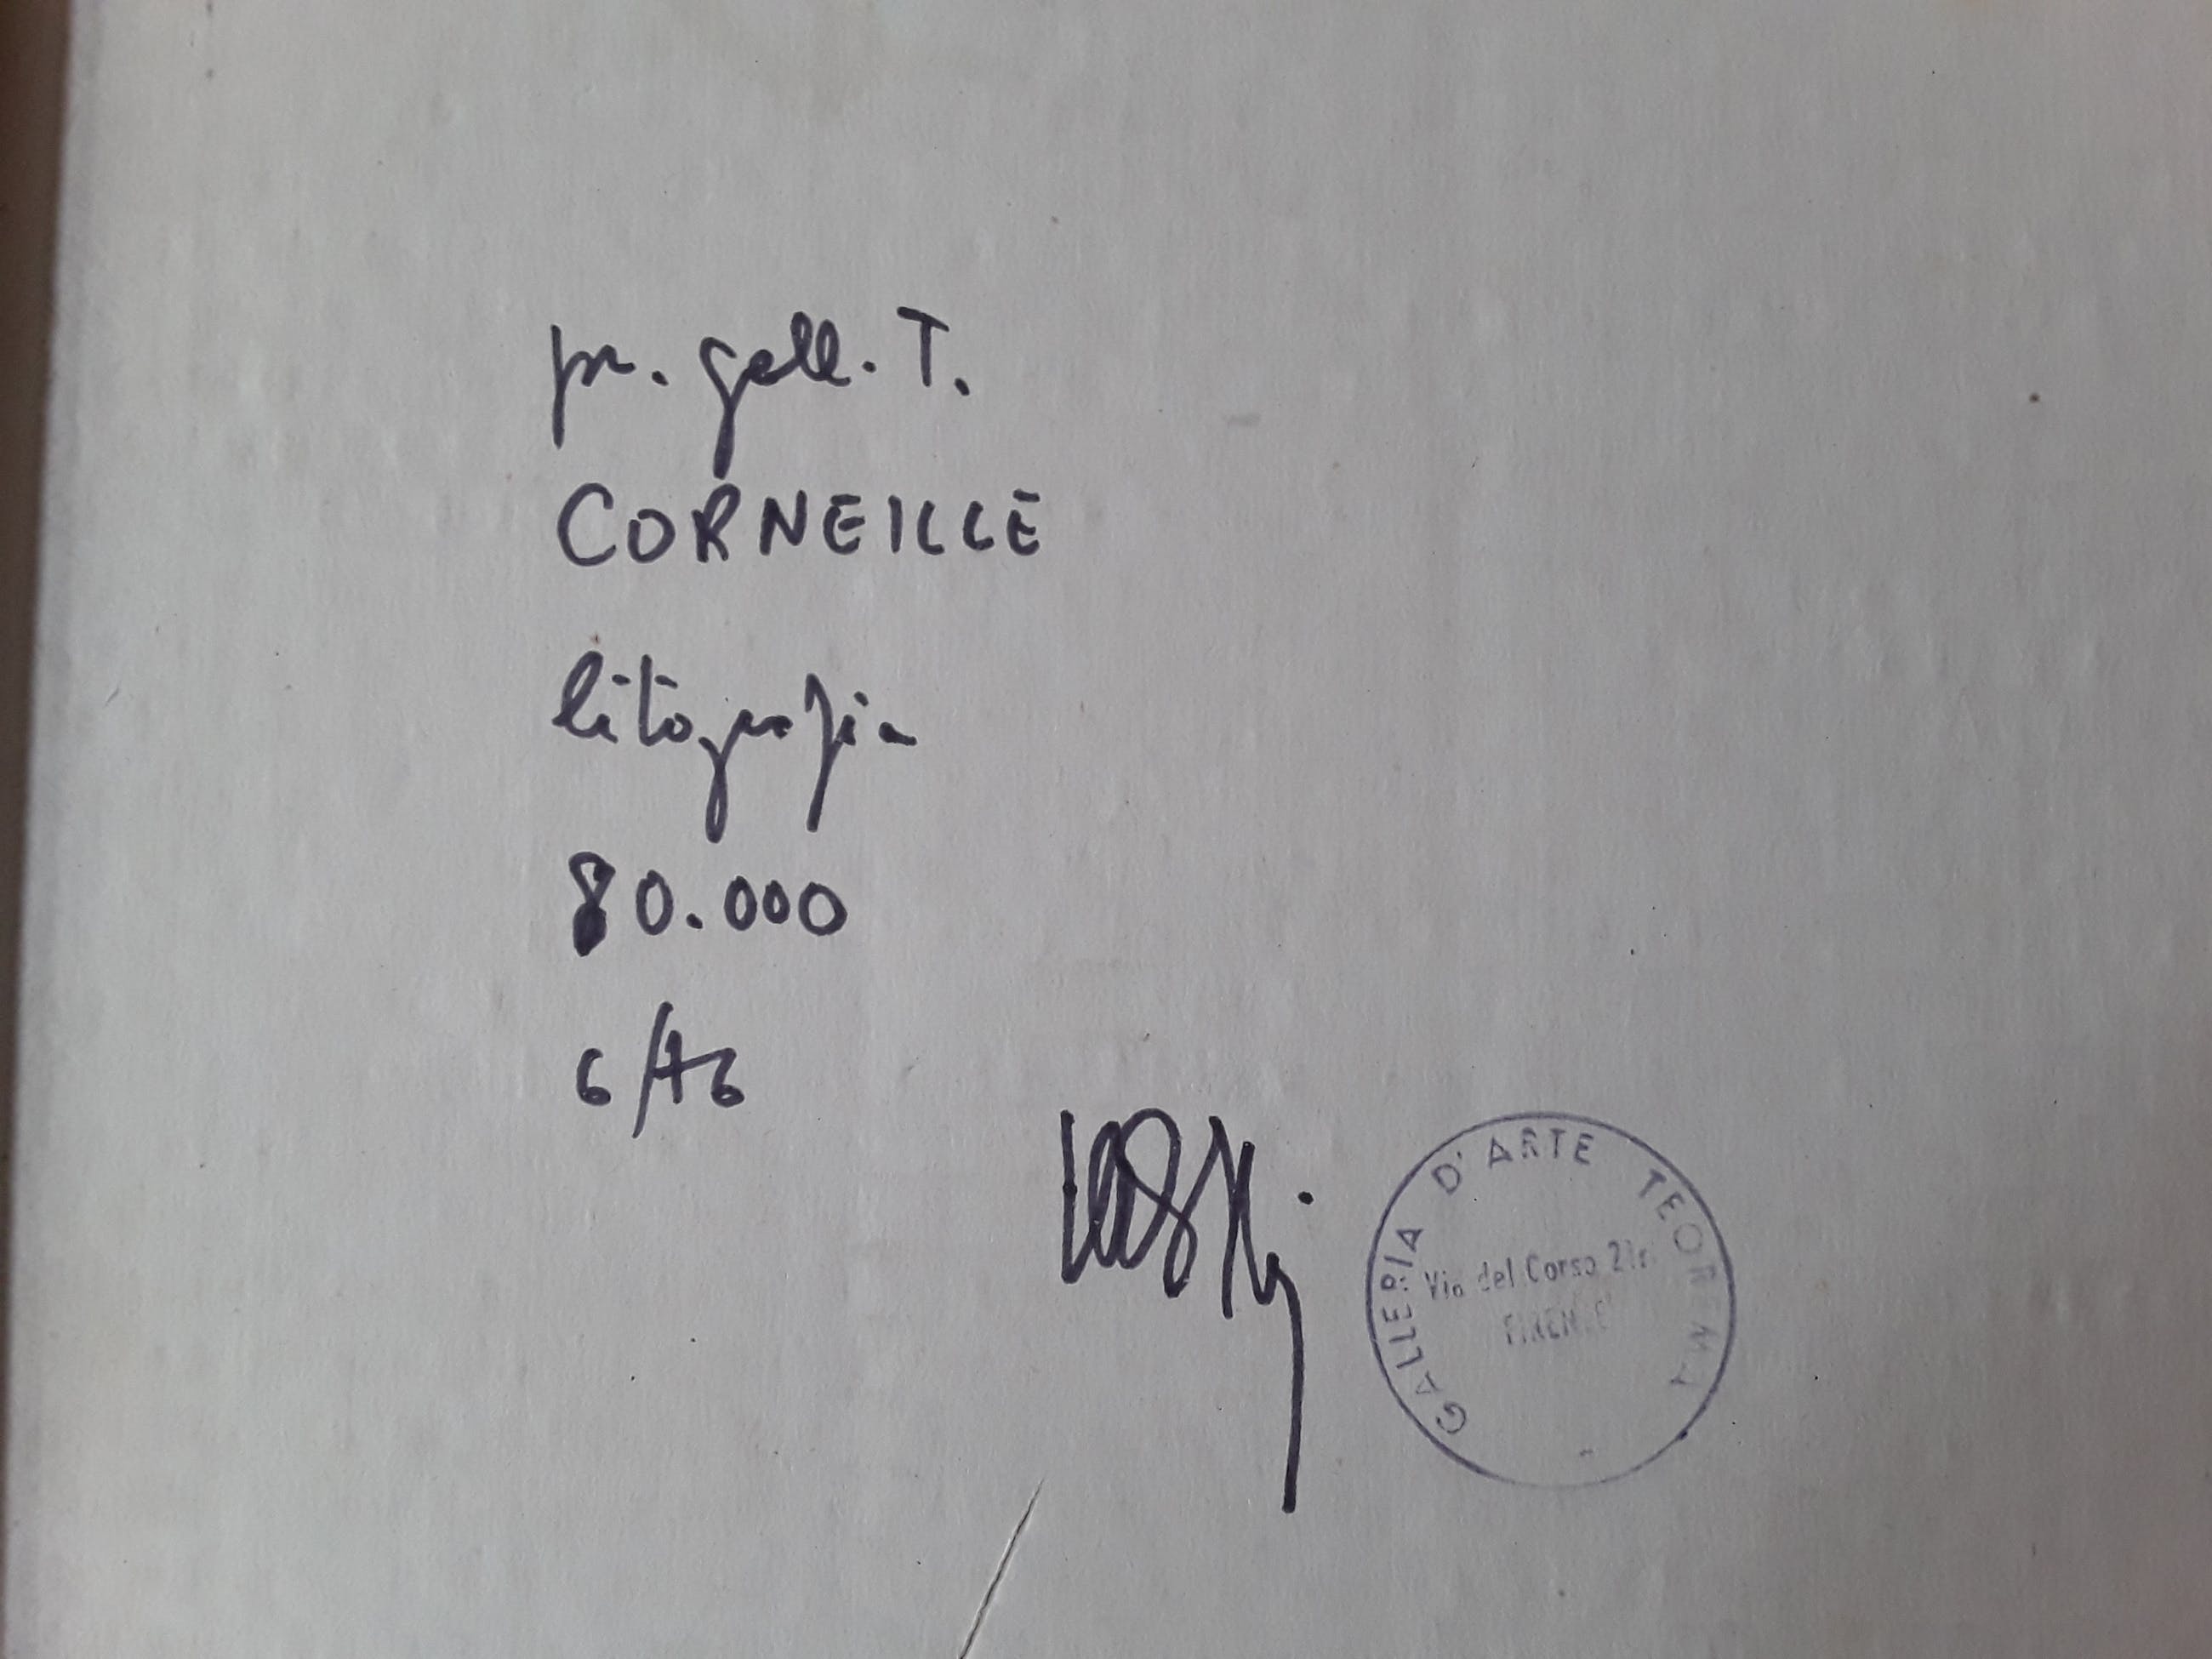 pr. gall. T.
CORNEILLE
litografia
80.000
GALLERIA D'ARTE TEOREMA
Via del Corso 21r.
FIRENZE